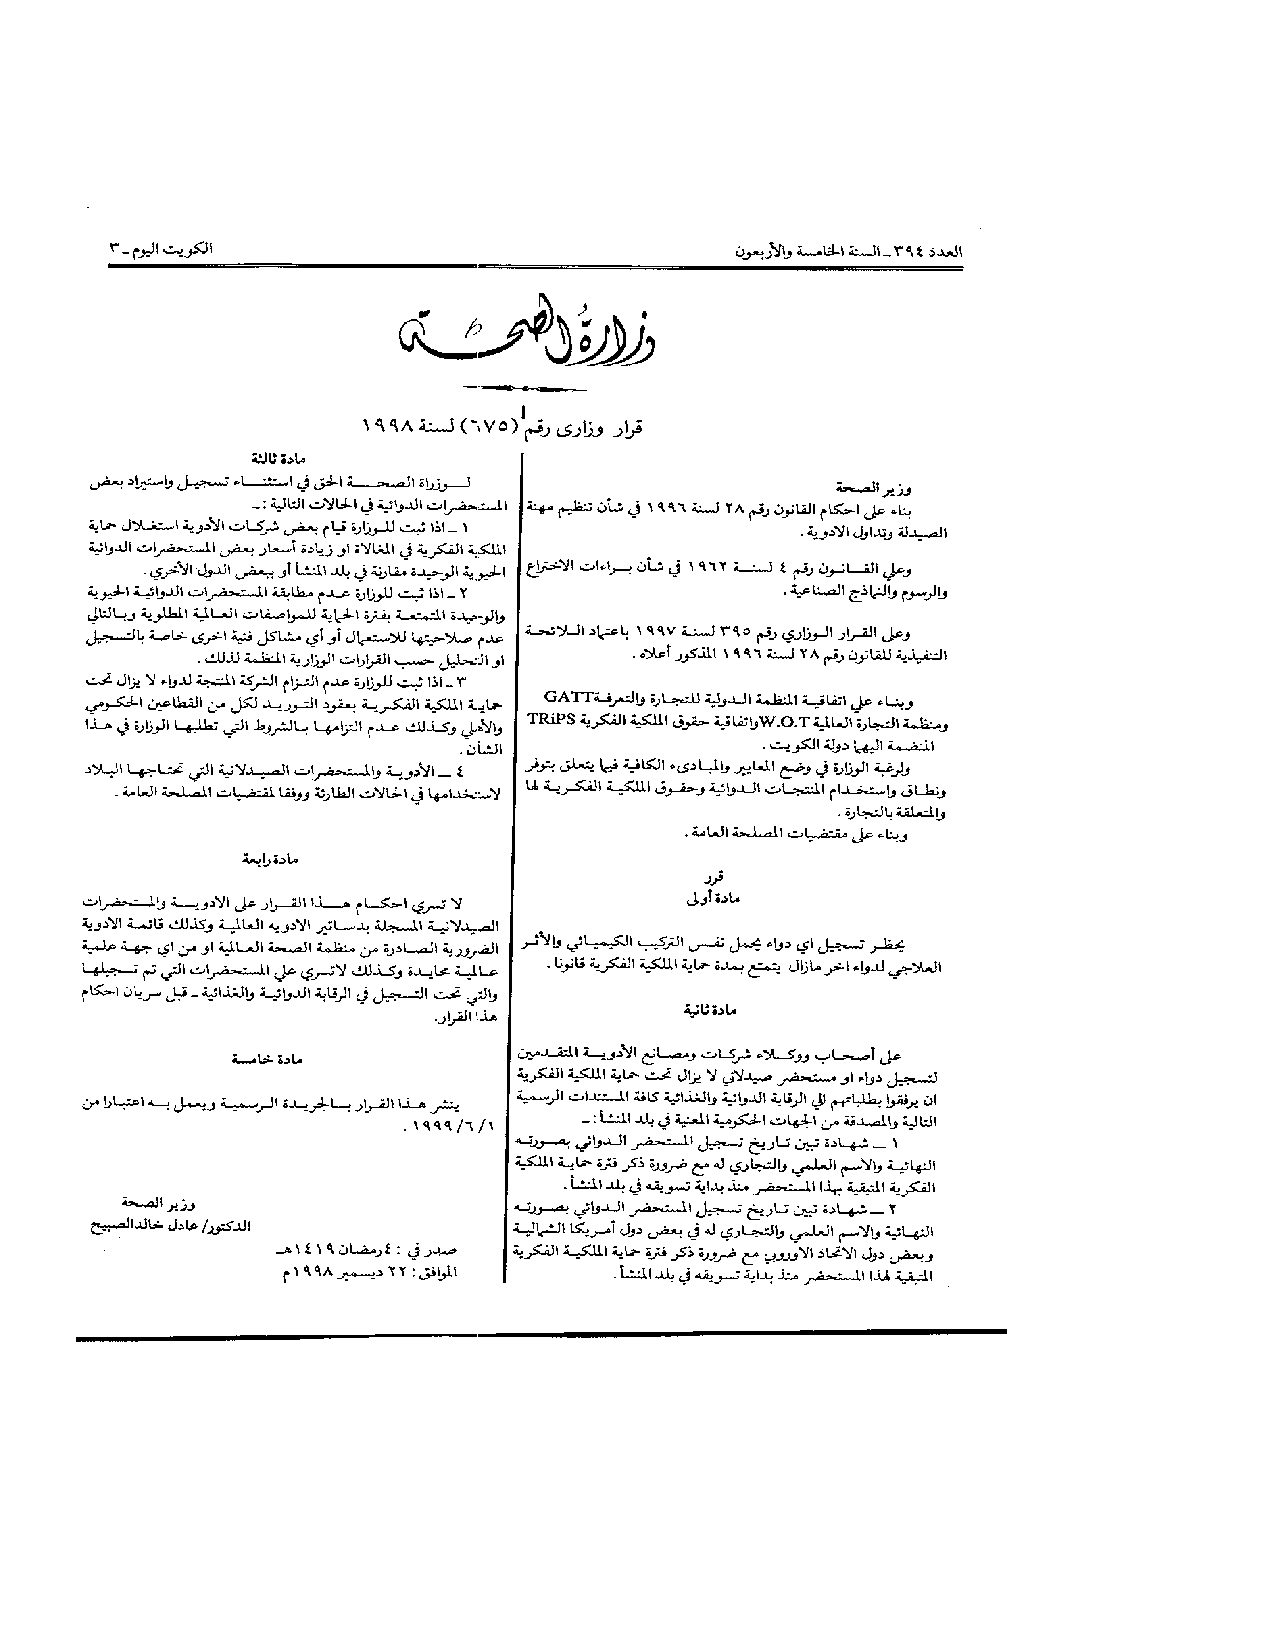 العدد ٣٩٤ - السنة الخامسة والأربعون
الكويت اليوم - ٣
وزارة الصحة
قرار وزارى رقم (٦٧٥) لسنة ١٩٩٨
وزير الصحة
بناء على احكام القانون رقم ٢٨ لسنة ١٩٩٦ في شأن تنظيم مهنة
الصيدلة وتداول الادوية .
وعلى القانون رقم ٤ لسنة ١٩٦٢ في شأن براءات الاختراع
والرسوم والنماذج الصناعية .
وعلى القرار الوزاري رقم ٣٩٥ لسنة ١٩٩٧ باعتماد اللائحة
التنفيذية للقانون رقم ٢٨ لسنة ١٩٩٦ المذكور أعلاه .
وبناء على اتفاقية المنظمة الدولية للتجارة والتعرفة GATT
ومنظمة التجارة العالمية W.O.T واتفاقية حقوق الملكية الفكرية TRiPS
المنضمة اليها دولة الكويت .
ولرغبة الوزارة في وضع المعايير والمبادىء الكافية فيما يتعلق بتوفر
ونطاق واستخدام المنتجات الدوائية وحقوق الملكية الفكرية لها
والمتعلقة بالتجارة .
وبناء على مقتضيات المصلحة العامة .
قرر
مادة أولى
يحظر تسجيل اي دواء يحمل نفس التركيب الكيميائي والأثر
العلاجي لدواء اخر مازال يتمتع بمدة حماية الملكية الفكرية قانونا .
مادة ثانية
على أصحاب ووكلاء شركات ومصانع الأدوية المتقدمين
لتسجيل دواء او مستحضر صيدلاني لا يزال تحت حماية الملكية الفكرية
ان يرفقوا بطلباتهم الى الرقابة الدوائية والغذائية كافة المستندات الرسمية
التالية والمصدقة من الجهات الحكومية المعنية في بلد المنشأ : ـ
١ ـ شهادة تبين تاريخ تسجيل المستحضر الدوائي بصورته
النهائية والاسم العلمي والتجاري له مع ضرورة ذكر فترة حماية الملكية
الفكرية المتبقية بهذا المستحضر منذ بداية تسويقه في بلد المنشأ .
٢ ـ شهادة تبين تاريخ تسجيل المستحضر الدوائي بصورته
النهائية والاسم العلمي والتجاري له في بعض دول أمريكا الشمالية
وبعض دول الاتحاد الاوروبي مع ضرورة ذكر فترة حماية الملكية الفكرية
المتبقية لهذا المستحضر منذ بداية تسويقه في بلد المنشأ .
مادة ثالثة
لوزراة الصحة الحق في استثناء تسجيل واستيراد بعض
المستحضرات الدوائية في الحالات التالية : ـ
١ ـ اذا ثبت للوزارة قيام بعض شركات الأدوية استغلال حماية
الملكية الفكرية في المغالاة او زيادة أسعار بعض المستحضرات الدوائية
الحيوية الوحيدة مقارنة في بلد المنشأ أو ببعض الدول الأخري .
٢ ـ اذا ثبت للوزارة عدم مطابقة المستحضرات الدوائية الحيوية
والوحيدة المتمتعة بفترة الحماية للمواصفات العالمية المطلوبة وبالتالي
عدم صلاحيتها للاستعمال أو أي مشاكل فنية اخرى خاصة بالتسجيل
او التحليل حسب القرارات الوزارية المنظمة لذلك .
٣ ـ اذا ثبت للوزارة عدم التزام الشركة المنتجة لدواء لا يزال تحت
حماية الملكية الفكرية بعقود التوريد لكل من القطاعين الحكومي
والأهلي وكذلك عدم التزامها بالشروط التي تطلبها الوزارة في هذا
الشأن .
٤ ـ الأدوية والمستحضرات الصيدلانية التي تحتاجها البلاد
لاستخدامها في الحالات الطارئة ووفقا لمقتضيات المصلحة العامة .
مادة رابعة
لا تسري احكام هذا القرار على الادوية والمستحضرات
الصيدلانية المسجلة بدساتير الادويه العالمية وكذلك قائمة الادوية
الضرورية الصادرة من منظمة الصحة العالمية او من اي جهة علمية
عالمية محايدة وكذلك لاتسري على المستحضرات التي تم تسجيلها
والتي تحت التسجيل في الرقابة الدوائية والغذائية ـ قبل سريان احكام
هذا القرار .
مادة خامسة
ينشر هذا القرار بالجريدة الرسمية ويعمل به اعتبارا من
١/٦/١٩٩٩ .
وزير الصحة
الدكتور/ عادل خالد الصبيح
صدر في : ٤ رمضان ١٤١٩هـ
الموافق : ٢٢ ديسمبر ١٩٩٨م